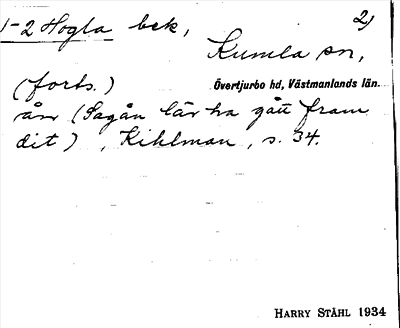 1-2 Hogla bek, 2)
Kumla sn,
(forts.) Övertjurbo hd, Västmanlands län.
ån (Sagån lär ha gått fram
dit), Kihlman, s. 34.
HARRY STÅHL 1934